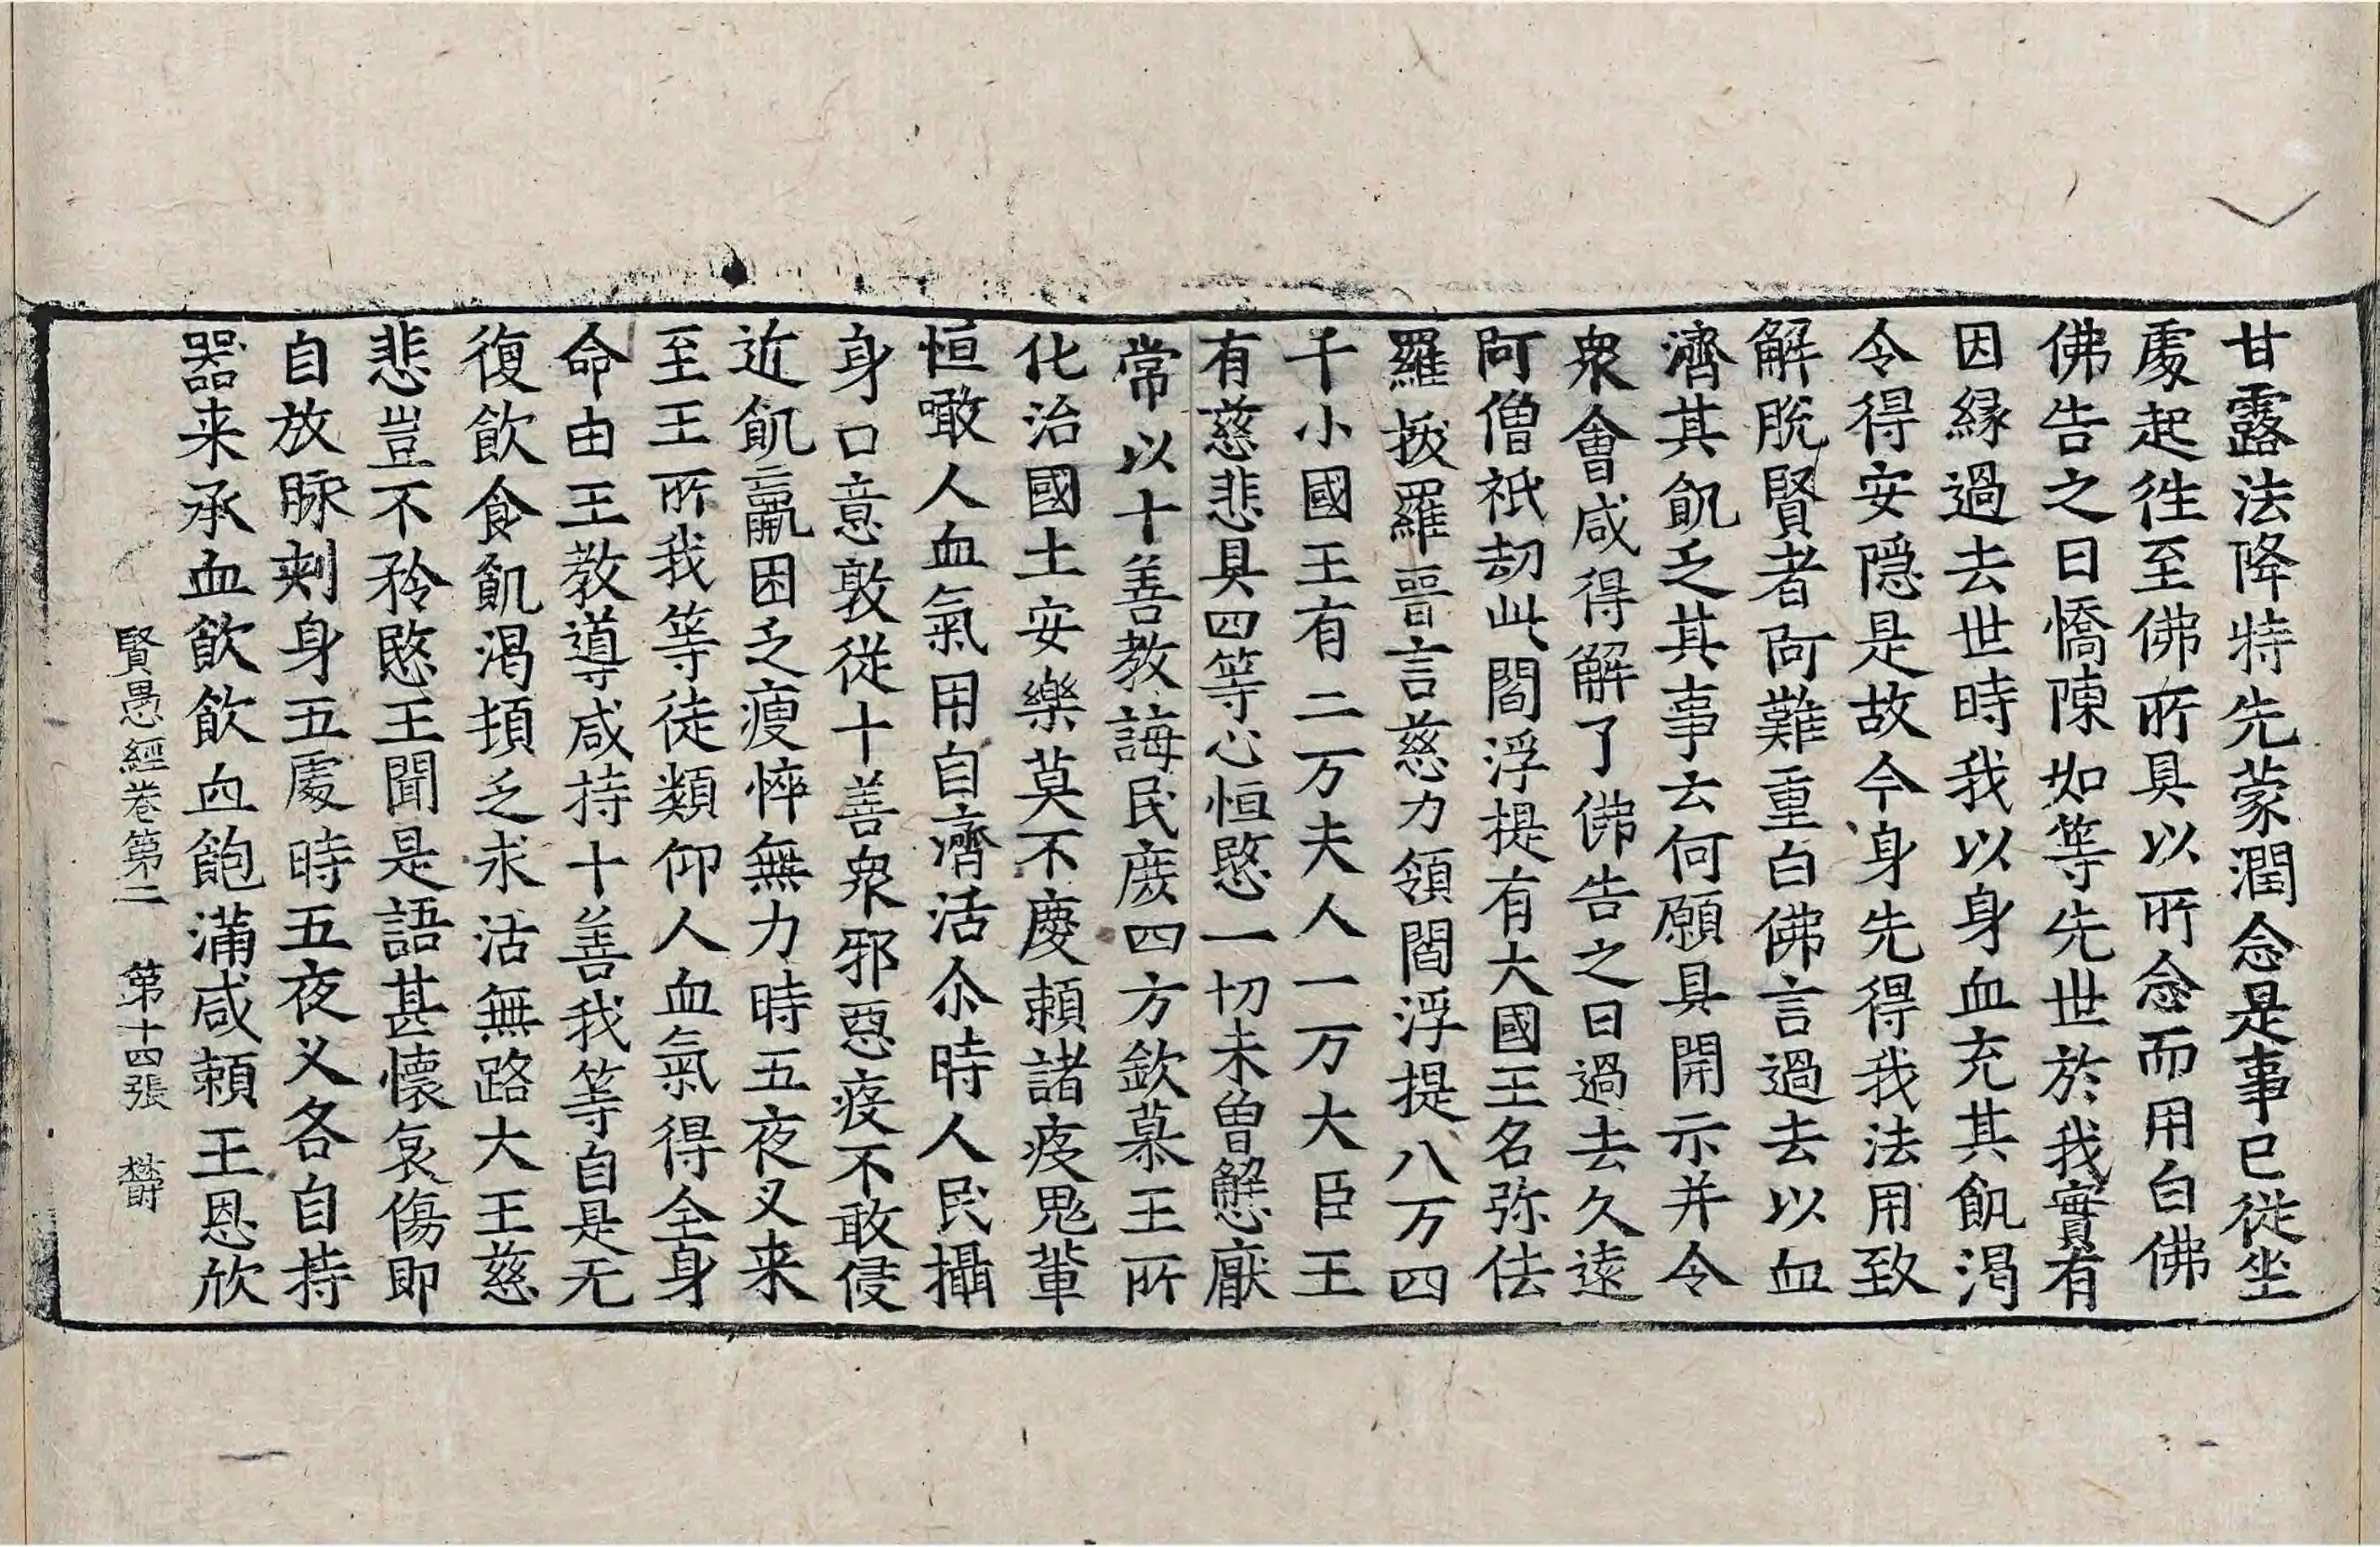 甘露法降特先蒙潤念是事已從坐
處起往至佛所具以所念而用白佛
佛告之曰憍陳如等先世於我實有
因縁過去世時我以身血充其飢渴
令得安隠是故今身先得我法用致
解脫賢者阿難重白佛言過去以血
濟其飢乏其事云何願具開示并令
衆會咸得解了佛告之曰過去久遠
阿僧祇劫此閻浮提有大國王名弥佉
羅拔羅晉言慈力領閻浮提八万四
千小國王有二万夫人一万大臣王
有慈悲具四等心恒愍一切未曽懈厭
常以十善教誨民庶四方欽慕王所
化治國土安樂莫不慶賴諸疫鬼輩
恒噉人血氣用自濟活尒時人民攝
身口意敦從十善衆邪惡疫不敢侵
近飢羸困乏瘦悴無力時五夜叉来
至王所我等徒類仰人血氣得全身
命由王教導咸持十善我等自是无
復飲食飢渴頓乏求活無路大王慈
悲豈不矜愍王聞是語甚懷哀傷即
自放脉刾身五處時五夜叉各自持
器来承血飲飲血飽滿咸賴王恩欣
賢愚經卷第二　第十四張　欝